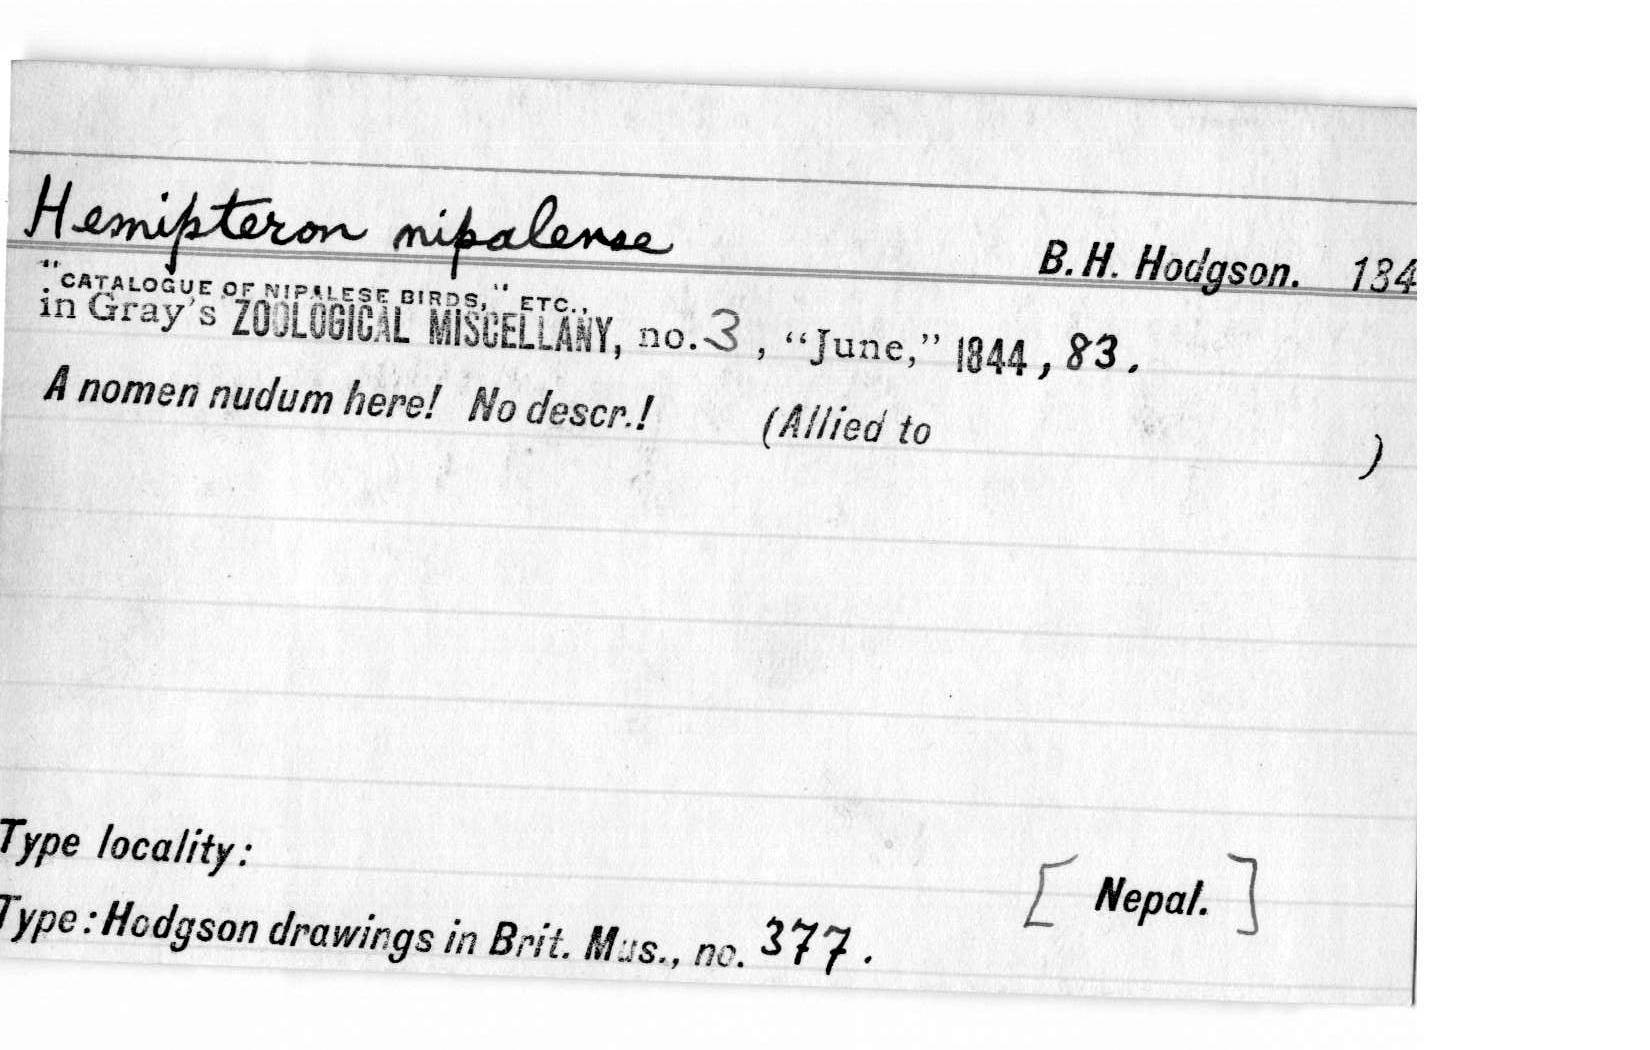 Hemipteron nipalense B.H. Hodgson. 184
"CATALOGUE OF NIPALESE BIRDS," ETC.,
in Gray's ZOOLOGICAL MISCELLANY, no. 3, "June," 1844, 83.
A nomen nudum here! No descr.! (Allied to )
Type locality: [Nepal.]
Type: Hodgson drawings in Brit. Mus., no. 377.